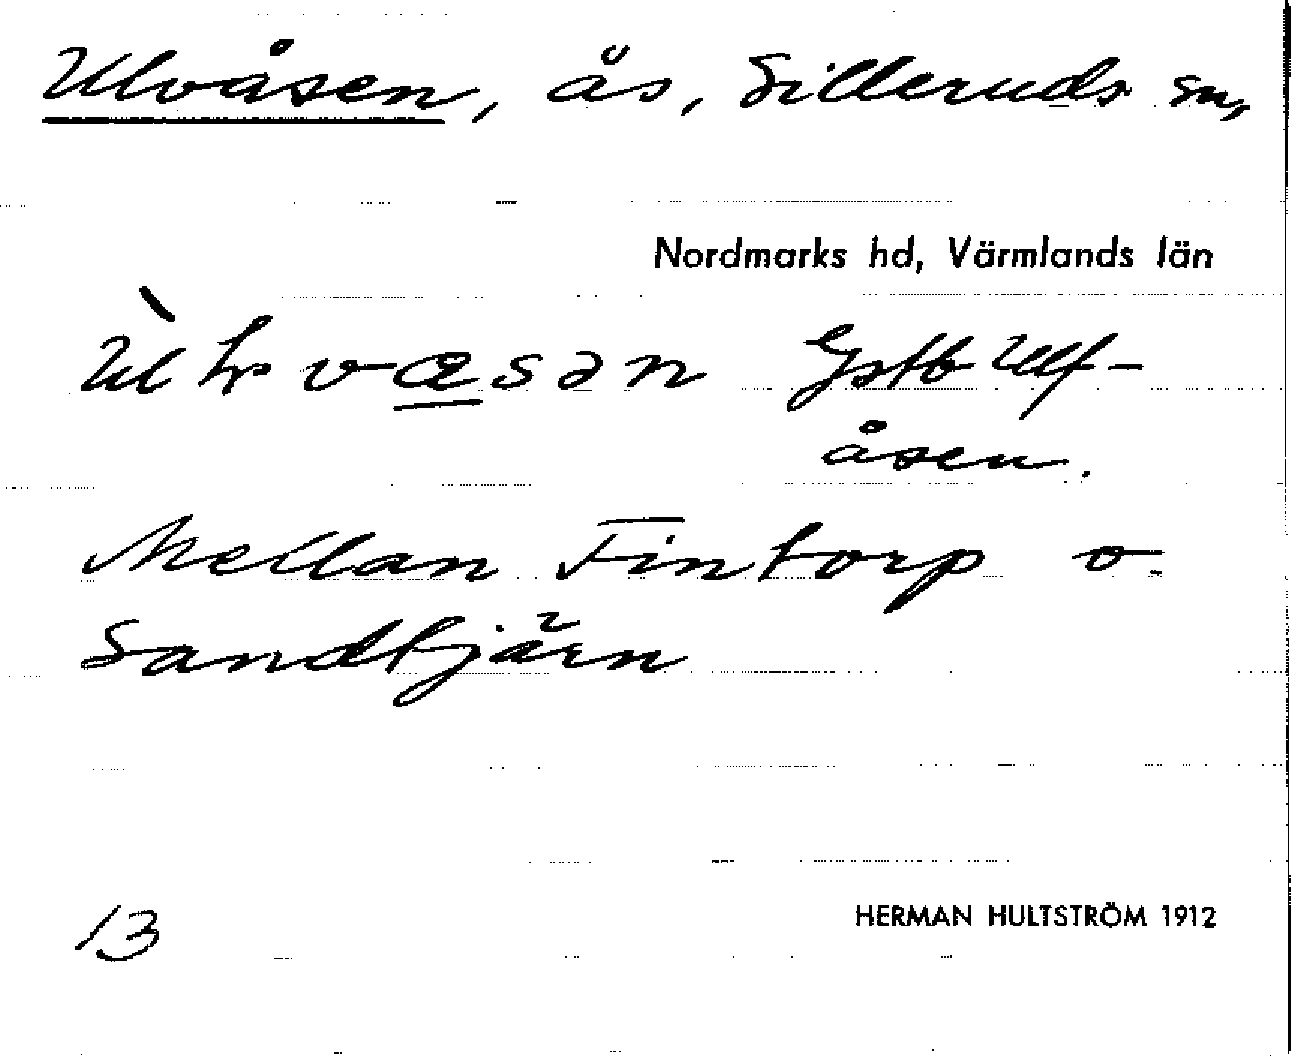 Ulvåsen, ås, Silleruds sn,
Nordmarks hd, Värmlands län
Gstb Ulf-
åsen.
Mellan Fintorp o
Sandtjärn
13
HERMAN HULTSTRÖM 1912